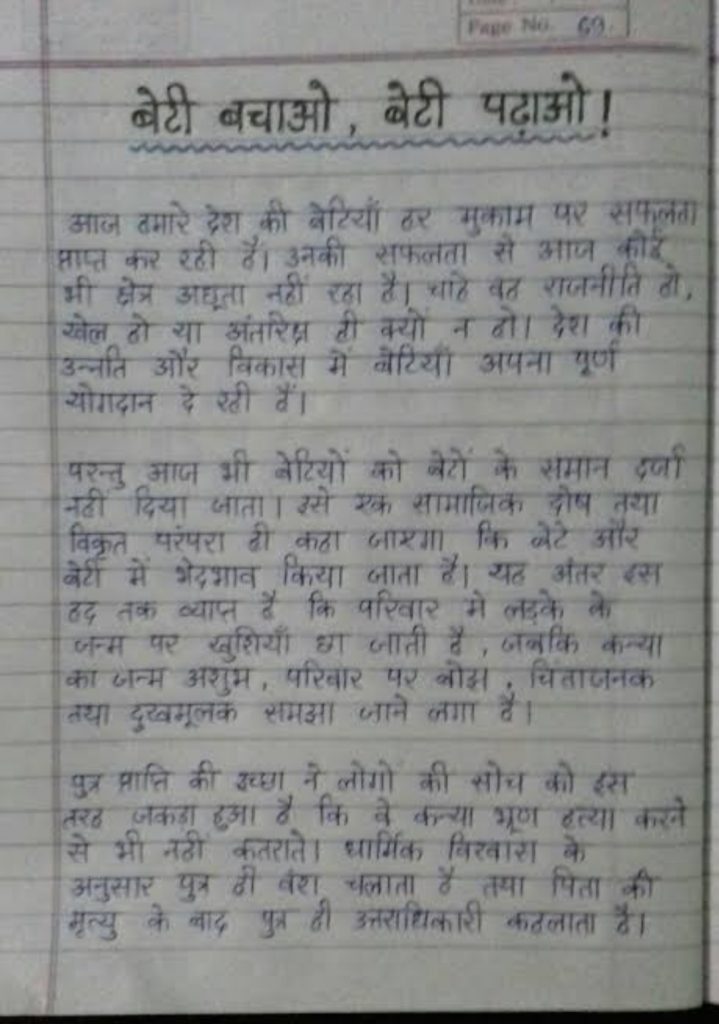 Page No. 69.
बेटी बचाओ, बेटी पढ़ाओ!
आज हमारे देश की बेटियाँ हर मुकाम पर सफलता
प्राप्त कर रही है। उनकी सफलता से आज कोई
भी क्षेत्र अछूता नहीं रहा है। चाहे वह राजनीति हो,
खेल हो या अंतरिक्ष ही क्यों न हो। देश की
उन्नति और विकास में बेटियाँ अपना पूर्ण
योगदान दे रही हैं।
परन्तु आज भी बेटियों को बेटों के समान दर्जा
नहीं दिया जाता। इसे एक सामाजिक दोष तथा
विकृत परंपरा ही कहा जाएगा कि बेटे और
बेटी में भेदभाव किया जाता है। यह अंतर इस
हद तक व्याप्त है कि परिवार मे लड़के के
जन्म पर खुशियाँ छा जाती है, जबकि कन्या
का जन्म अशुभ, परिवार पर बोझ, चिंताजनक
तथा दुखमूलक समझा जाने लगा है।
पुत्र प्राप्ति की इच्छा ने लोगों की सोच को इस
तरह जकड़ा हुआ है कि वे कन्या भ्रूण हत्या करने
से भी नहीं कतराते। धार्मिक विश्वास के
अनुसार पुत्र ही वंश चलाता है तथा पिता की
मृत्यु के बाद पुत्र ही उत्तराधिकारी कहलाता है।